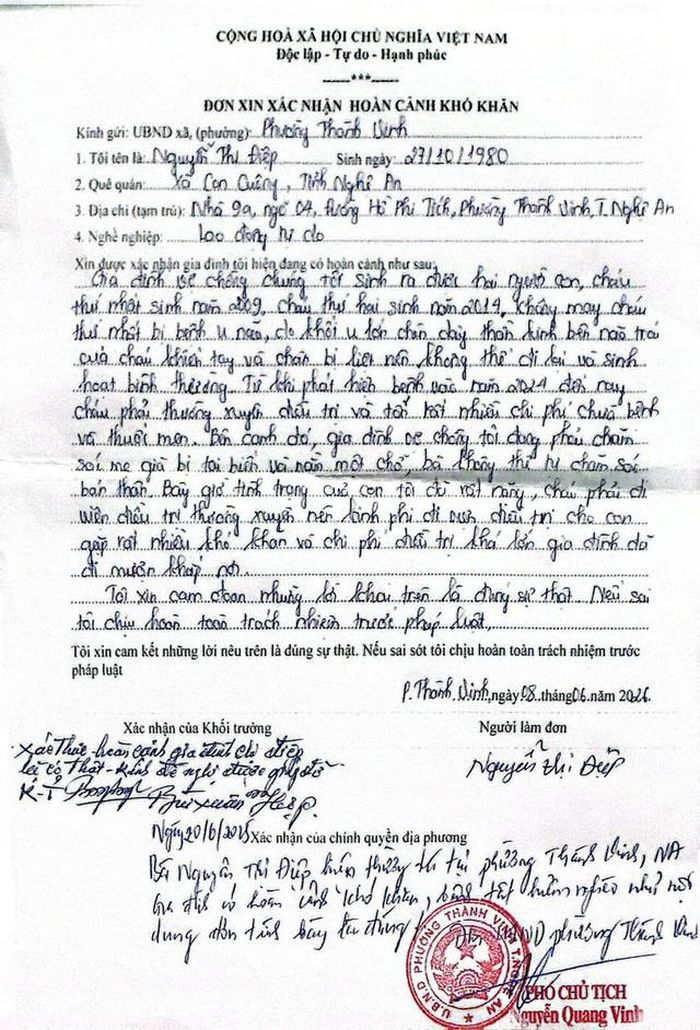 CỘNG HOÀ XÃ HỘI CHỦ NGHĨA VIỆT NAM
Độc lập - Tự do - Hạnh phúc
-----***-----
ĐƠN XIN XÁC NHẬN HOÀN CẢNH KHÓ KHĂN
Kính gửi: UBND xã, (phường): Phường Thành Vinh
1. Tôi tên là: Nguyễn Thị Điệp Sinh ngày: 27/10/1980
2. Quê quán: Xã Con Cuông, Tỉnh Nghệ An
3. Địa chỉ (tạm trú): Nhà 9a, ngõ 04, đường Hồ Phi Tích, Phường Thành Vinh, T. Nghệ An
4. Nghề nghiệp: Lao động tự do
Xin được xác nhận gia đình tôi hiện đang có hoàn cảnh như sau:
Gia đình vợ chồng chúng tôi sinh ra được hai người con, cháu
thứ nhất sinh năm 2009, cháu thứ hai sinh năm 2014, không may cháu
thứ nhất bị bệnh u não, do khối u lớn chèn dây thần kinh bên não trái
của cháu khiến tay và chân bị liệt nên không thể đi lại và sinh
hoạt bình thường. Từ khi phát hiện bệnh vào năm 2014 đến nay
cháu phải thường xuyên điều trị và tốn rất nhiều chi phí chữa bệnh
và thuốc men. Bên cạnh đó, gia đình vợ chồng tôi đang phải chăm
sóc mẹ già bị tai biến và nằm một chỗ, bà không thể tự chăm sóc
bản thân. Bây giờ tình trạng của con tôi đã rất nặng, cháu phải đi
viện điều trị thường xuyên nên kinh phí đi viện điều trị cho con
gặp rất nhiều khó khăn và chi phí điều trị khá lớn gia đình đã
đi mượn khắp nơi.
Tôi xin cam đoan những lời khai trên là đúng sự thật. Nếu sai
tôi chịu hoàn toàn trách nhiệm trước pháp luật.
Tôi xin cam kết những lời nêu trên là đúng sự thật. Nếu sai sót tôi chịu hoàn toàn trách nhiệm trước
pháp luật
P. Thành Vinh, ngày 08 tháng 06 năm 2026
Xác nhận của Khối trưởng Người làm đơn
Xác thực hoàn cảnh gia đình chị Điệp
là có thật - Kính đề nghị được giúp đỡ
K-T Bùi Xuân Hợp Nguyễn Thị Điệp
Xác nhận của chính quyền địa phương
Bà Nguyễn Thị Điệp hiện thường trú tại phường Thành Vinh, NA
gia đình có hoàn cảnh khó khăn, bệnh tật hiểm nghèo như nội
dung đơn trình bày là đúng UBND phường Thành Vinh
U.B.N.D PHƯỜNG THÀNH VINH T. NGHỆ AN
PHÓ CHỦ TỊCH
Nguyễn Quang Vinh